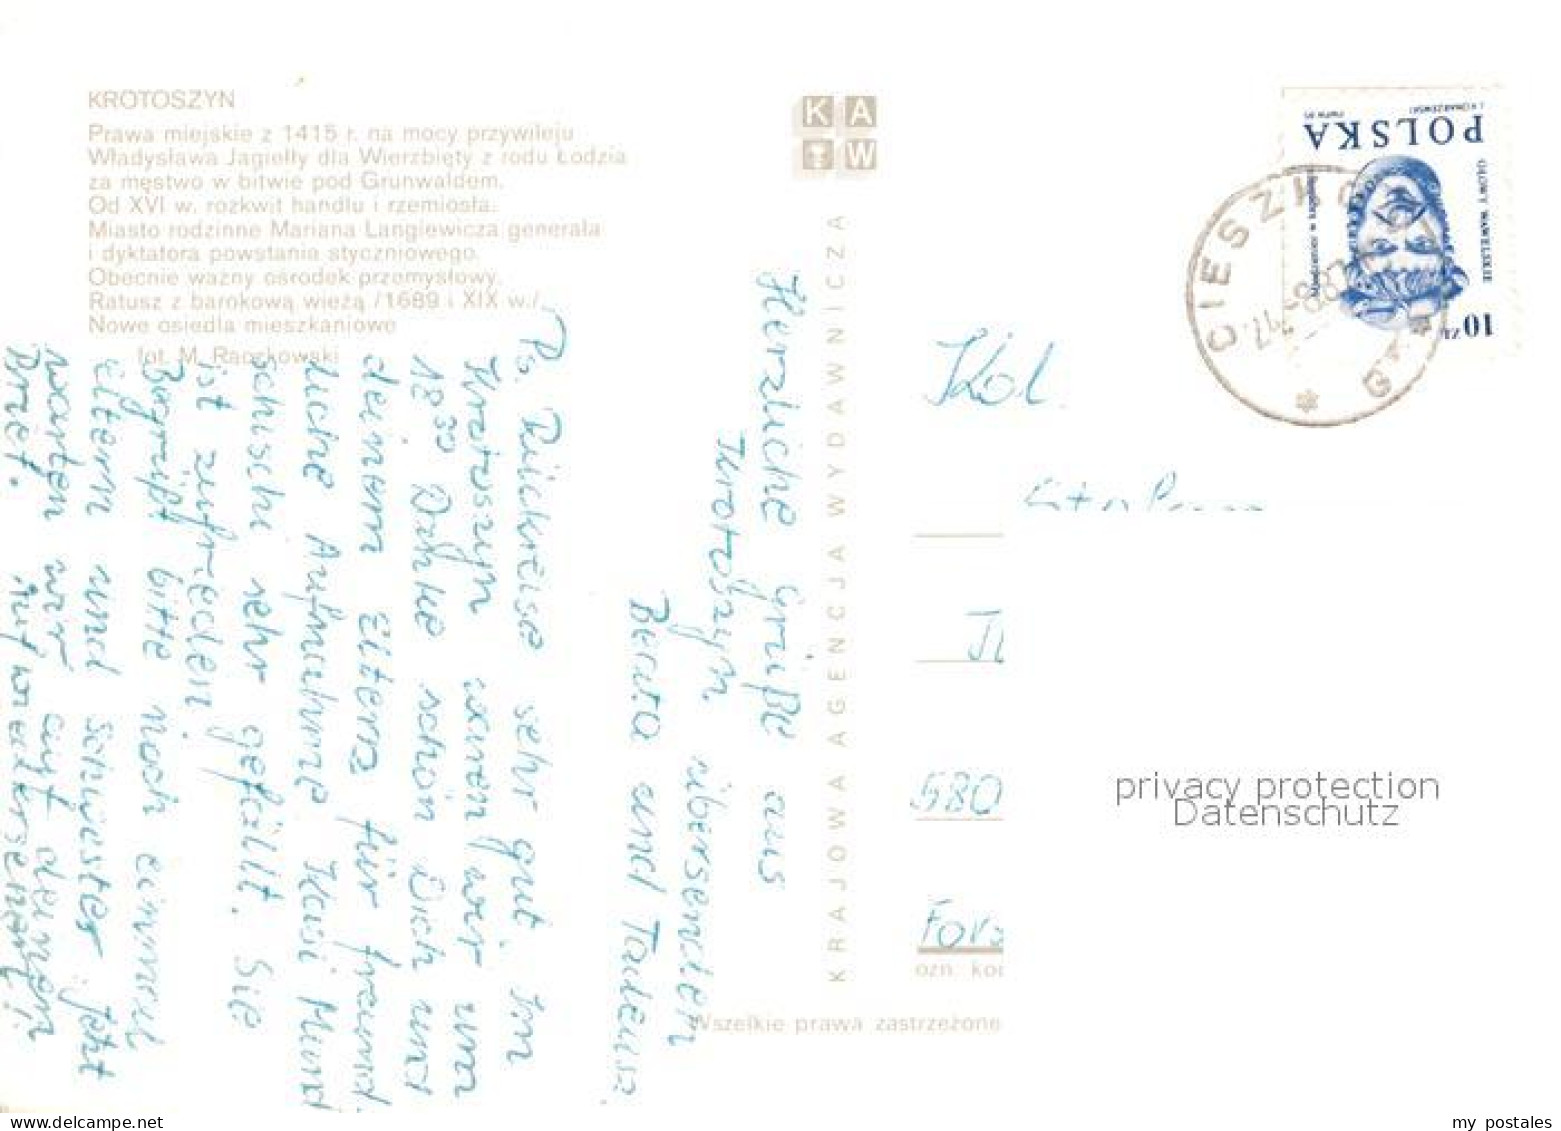 KROTOSZYN
Prawa miejskie z 1415 r. na mocy przywileju
Władysława Jagiełły dla Wierzbięty z rodu Łodzia
za męstwo w bitwie pod Grunwaldem.
Od XVI w. rozkwit handlu i rzemiosła.
Miasto rodzinne Mariana Langiewicza generała
i dyktatora powstania styczniowego.
Obecnie ważny ośrodek przemysłowy.
Ratusz z barokową wieżą /1689 i XIX w./
Nowe osiedla mieszkaniowe
fot. M. Raczkowski
KAW
KRAJOWA AGENCJA WYDAWNICZA
Herzliche Grüße aus
Krotoszyn übersenden
Beata und Tadeusz.
Ps. Rückreise sehr gut. In
Krotoszyn waren wir um
18³⁰ Danke schön Dich und
deinen Eltern für freund
liche Aufnahme Kasi Mund
schuschi sehr gefällt. Sie
ist zufrieden.
Begrüßt bitte noch einmal
Eltern und Schwester jetzt
warten wir auf deinen
Brief. Auf wiedersehen!
POLSKA
GŁOWY WAWELSKIE
10 ZŁ
CIESZKÓW
Kol.
580
For
ozn. kod
Wszelkie prawa zastrzeżone
privacy protection
Datenschutz
my postales